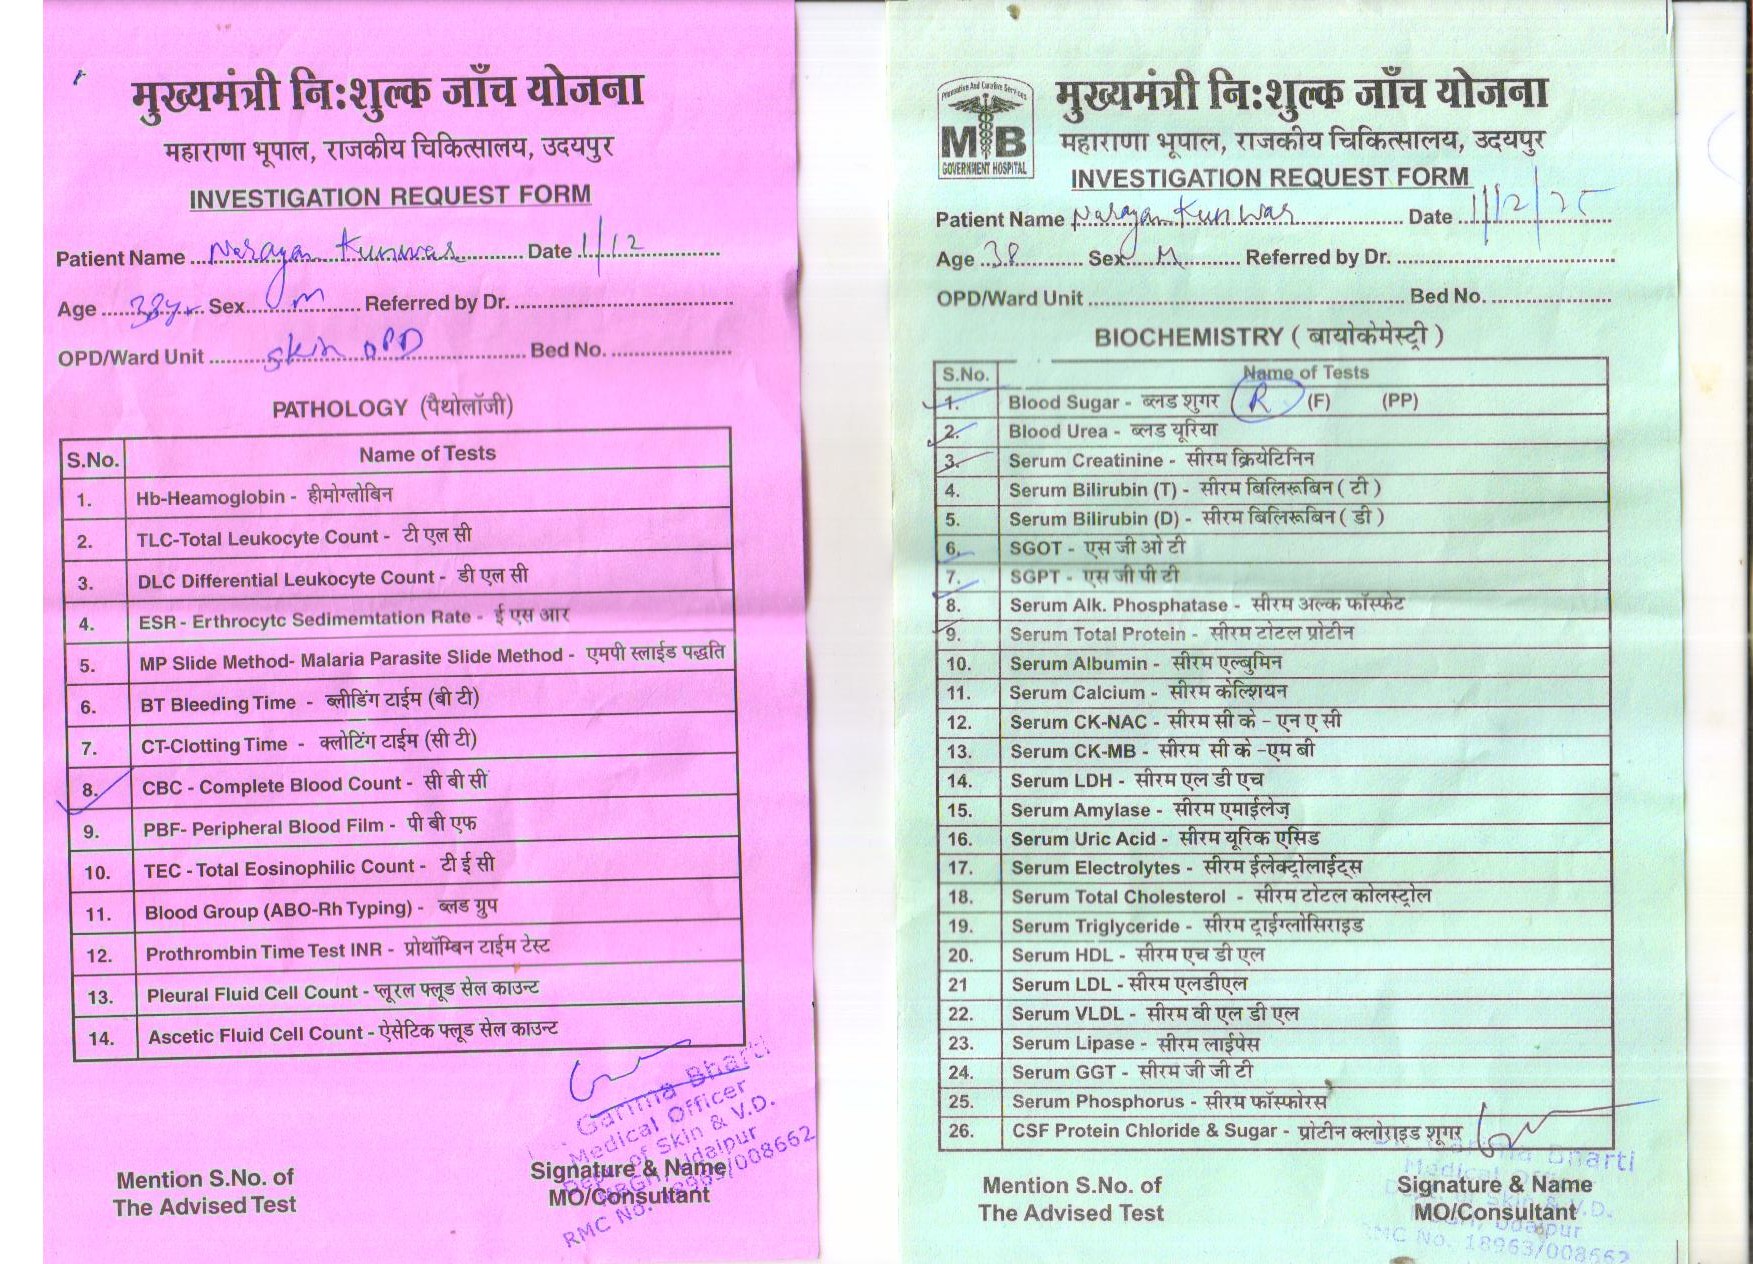 मुख्यमंत्री नि:शुल्क जाँच योजना
महाराणा भूपाल, राजकीय चिकित्सालय, उदयपुर
INVESTIGATION REQUEST FORM
Patient Name Narayan Kunwar Date 1/12
Age 38yr Sex m Referred by Dr.
OPD/Ward Unit Skin OPD Bed No.
PATHOLOGY (पैथोलॉजी)
S.No. Name of Tests
1. Hb-Heamoglobin - हीमोग्लोबिन
2. TLC-Total Leukocyte Count - टी एल सी
3. DLC Differential Leukocyte Count - डी एल सी
4. ESR - Erthrocytc Sedimemtation Rate - ई एस आर
5. MP Slide Method- Malaria Parasite Slide Method - एमपी स्लाईड पद्धति
6. BT Bleeding Time - ब्लीडिंग टाईम (बी टी)
7. CT-Clotting Time - क्लोटिंग टाईम (सी टी)
8. CBC - Complete Blood Count - सी बी सी
9. PBF- Peripheral Blood Film - पी बी एफ
10. TEC - Total Eosinophilic Count - टी ई सी
11. Blood Group (ABO-Rh Typing) - ब्लड ग्रुप
12. Prothrombin Time Test INR - प्रोथॉम्बिन टाईम टेस्ट
13. Pleural Fluid Cell Count - प्लूरल फ्लूड सेल काउन्ट
14. Ascetic Fluid Cell Count - ऐसेटिक फ्लूड सेल काउन्ट
Garima Bharti
Medical Officer
Dept. of Skin & V.D.
MBGH, Udaipur
RMC No. 18963/008662
Mention S.No. of
The Advised Test
Signature & Name
MO/Consultant
Promotive And Curative Services
MB
GOVERNMENT HOSPITAL
मुख्यमंत्री नि:शुल्क जाँच योजना
महाराणा भूपाल, राजकीय चिकित्सालय, उदयपुर
INVESTIGATION REQUEST FORM
Patient Name Narayan Kunwar Date 1/12/25
Age 38 Sex M Referred by Dr.
OPD/Ward Unit Bed No.
BIOCHEMISTRY ( बायोकेमेस्ट्री )
S.No. Name of Tests
1. Blood Sugar - ब्लड शुगर (R) (F) (PP)
2. Blood Urea - ब्लड यूरिया
3. Serum Creatinine - सीरम क्रियेटिनिन
4. Serum Bilirubin (T) - सीरम बिलिरूबिन ( टी )
5. Serum Bilirubin (D) - सीरम बिलिरूबिन ( डी )
6. SGOT - एस जी ओ टी
7. SGPT - एस जी पी टी
8. Serum Alk. Phosphatase - सीरम अल्क फॉस्फेट
9. Serum Total Protein - सीरम टोटल प्रोटीन
10. Serum Albumin - सीरम एल्बुमिन
11. Serum Calcium - सीरम केल्शियन
12. Serum CK-NAC - सीरम सी के - एन ए सी
13. Serum CK-MB - सीरम सी के -एम बी
14. Serum LDH - सीरम एल डी एच
15. Serum Amylase - सीरम एमाईलेज़
16. Serum Uric Acid - सीरम यूरिक एसिड
17. Serum Electrolytes - सीरम ईलेक्ट्रोलाईट्स
18. Serum Total Cholesterol - सीरम टोटल कोलस्ट्रोल
19. Serum Triglyceride - सीरम ट्राईग्लोसिराइड
20. Serum HDL - सीरम एच डी एल
21 Serum LDL - सीरम एलडीएल
22. Serum VLDL - सीरम वी एल डी एल
23. Serum Lipase - सीरम लाईपेस
24. Serum GGT - सीरम जी जी टी
25. Serum Phosphorus - सीरम फॉस्फोरस
26. CSF Protein Chloride & Sugar - प्रोटीन क्लोराइड शूगर
Mention S.No. of
The Advised Test
Signature & Name
MO/Consultant
RMC No. 18963/008662